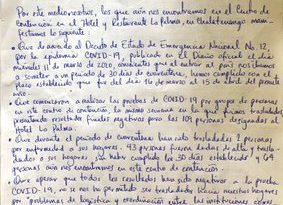 Por este medio nosotros, los que aún nos encontramos en el Centro de
Contención en el Hotel y Restaurante la Palma, en Chalatenango mani-
festamos lo siguiente
• Que de acuerdo al Decreto de Estado de Emergencia Nacional No. 12,
por la epidemia COVID-19, publicado en el Diario oficial el día
miércoles 11 de marzo de 2020, ciudadanos que al entrar al país nos
a someter a un periodo de 30 días de cuarentena, hemos cumplido con el
plazo establecido que fue del día 16 de marzo al 15 de abril del presente
año.
• Que comenzaron a realizar las pruebas de COVID-19 por grupos de personas
en este centro de contención, la misma semana en la que fuimos trasladados
presentando resultados finales negativos para las 109 personas designadas al
Hotel La Palma.
• Que durante el periodo de cuarentena han sido trasladadas 2 personas
por enfermedad a sus hogares, 43 personas fueron dadas de alta y trasla-
dados a sus hogares sin haber cumplido los 30 días establecidos y 64
personas aún nos encontramos en este centro de contención.
• Que a pesar que todos los resultados han sido negativos a la prueba
COVID-19, no se nos ha permitido ser trasladados hacia nuestros hogares
por "problemas de logística y coordinación entre las instituciones